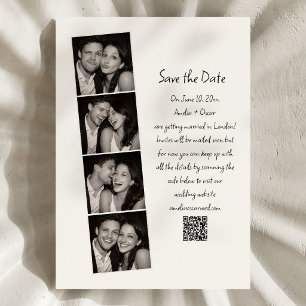 Save the Date
On June 10, 20xx
Amelia + Oscar
are getting married in London!
Invites will be mailed soon but
for now you can keep up with
all the details by spanning the
code below to visit our
wedding website